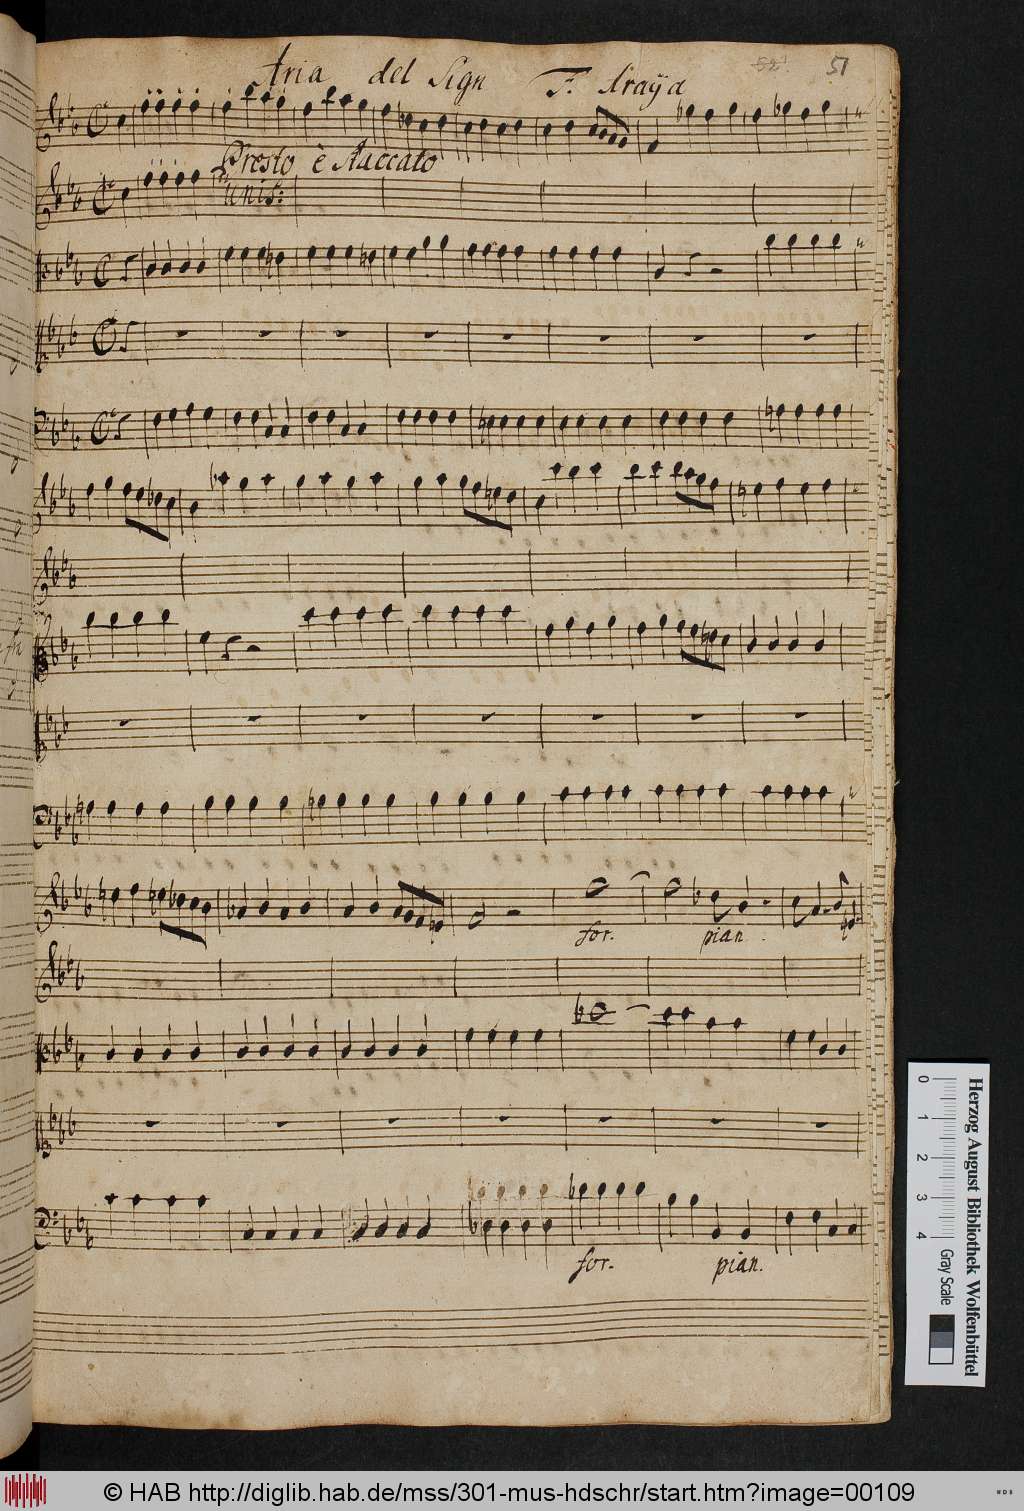 Aria del Sign F. Araÿa
52.
51
Presto è Staccato
unis:
for. pian.
for. pian.
0 1 2 3 4
Gray Scale
Herzog August Bibliothek Wolfenbüttel
© HAB http://diglib.hab.de/mss/301-mus-hdschr/start.htm?image=00109